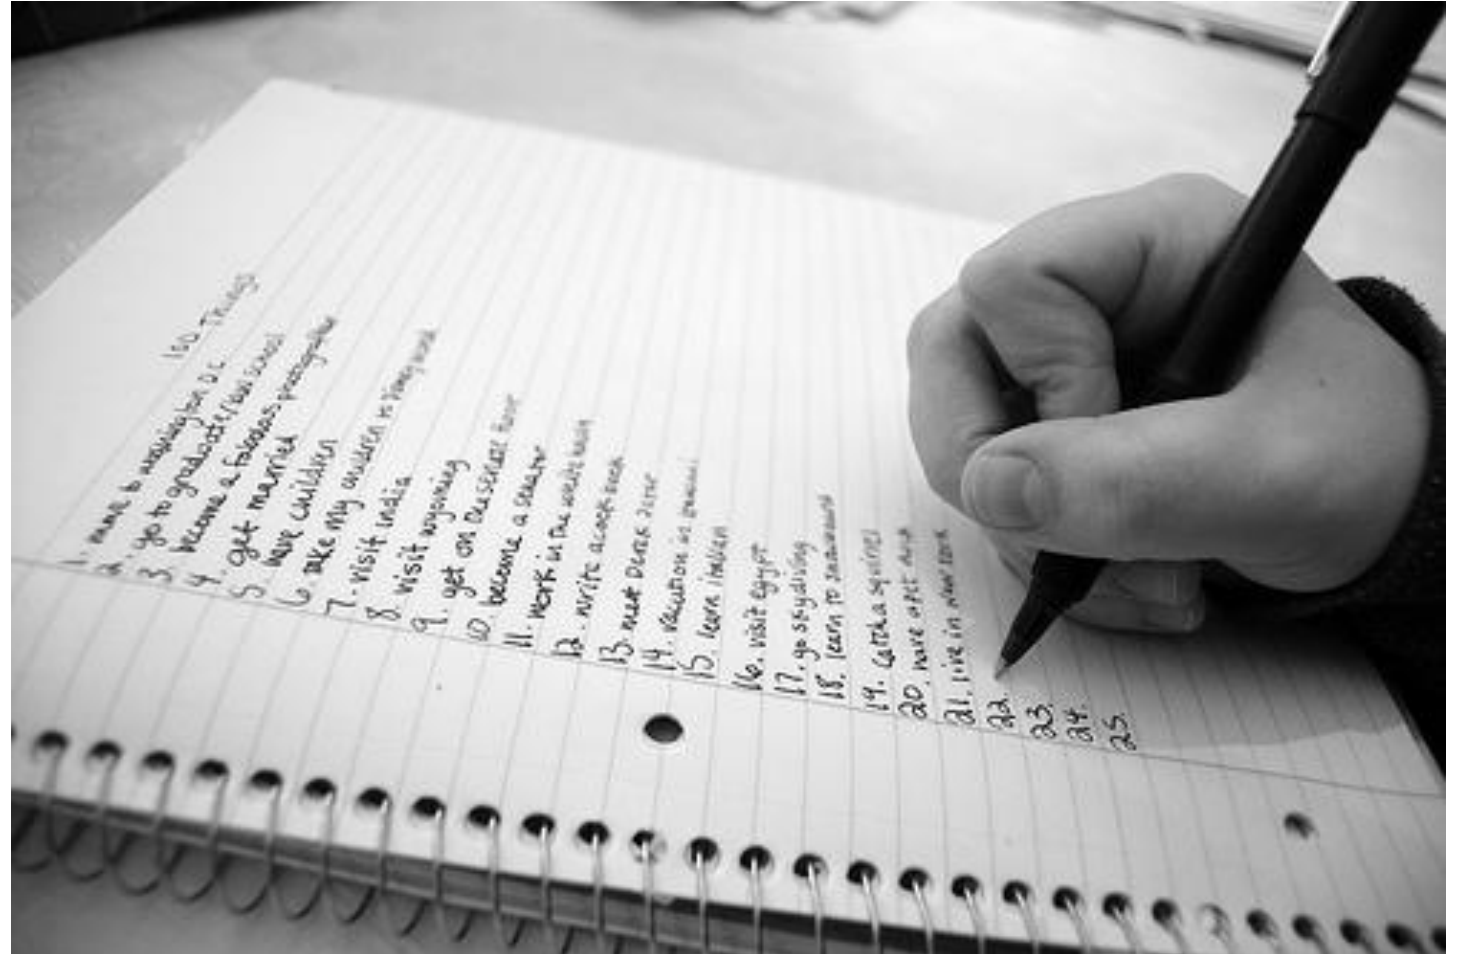 100 Things
1. move to washington D.C.
2. go to graduate/law school
3. become a fabulous photographer
4. get married
5. have children
6. take my children to disney world
7. visit india
8. visit wyoming
9. get on the senate floor
10. become a senator
11. work in the white house
12. write a cook book
13. meet Derek Jeter
14. vacation in
15. learn italian
16. visit egypt
17. go skydiving
18. learn to snowboard
19. catch a squirrel
20. have
21. live in new york
22.
23.
24.
25.